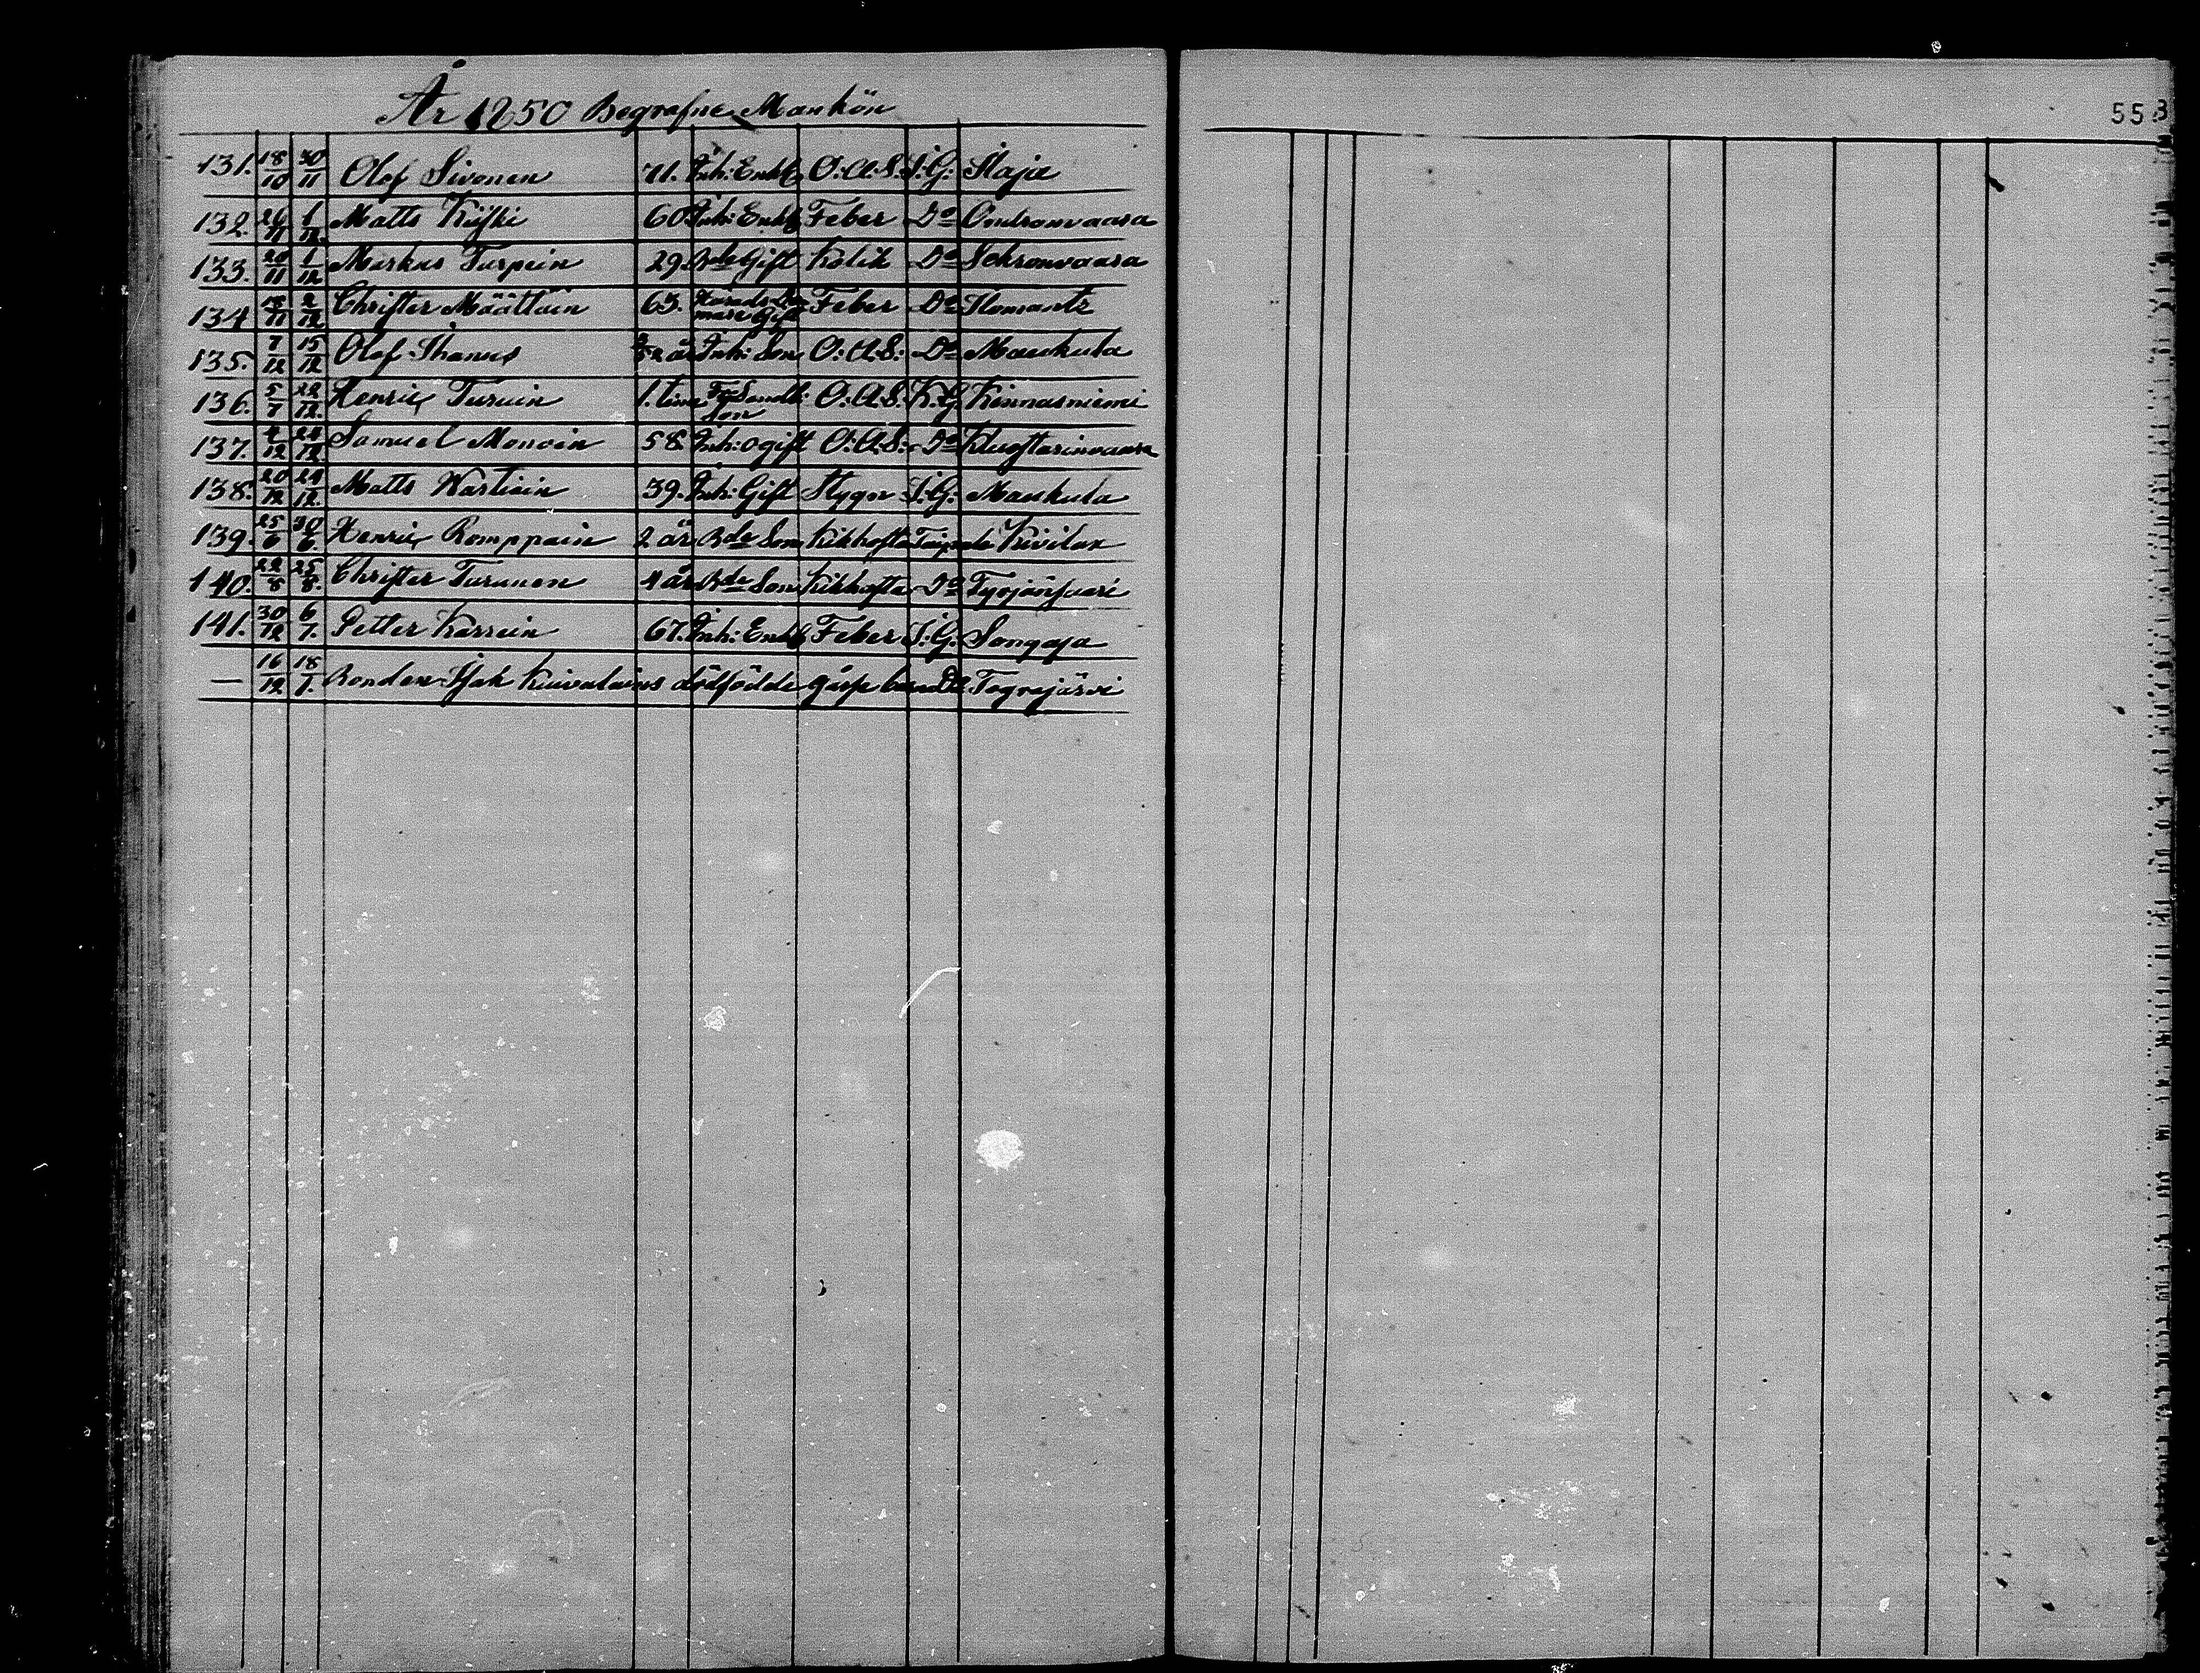 År 1850 Begrafne Mankön
558
131. 18/10 30/11 Olof Sivonen 71. Inh: Enkl. O.A.S. I.G. Ilaja
132. 26/11 1/12 Matts Kiiski 60 Inh: Enkl. Feber Do Ontronvaara
133. 20/11 1/12 Markus Turpein 29. Bde Gift Kolik Do Sokronvaara
134 18/11 2/12 Christer Määttäin 63. Gift Feber Do Ilomants
135. 7/12 15/12 Olof Ihanus år Inh: Son O.A.S. Do Maukula
136. 5/7 22/12 Henric Turuin 1. tim. Son O.A.S. K.G. Kinnasniemi
137. 4/12 24/12 Samuel Monoin 58 Inh: ogift O.A.S. Do
138. 20/12 24/12 Matts Wartiain 39. Inh: Gift Stygn I.G. Maukula
139. 25/6 30/6. Henric Romppain 2 år Bde Son Kikhosta Taipale Kivilax
140. 22/8 25/8. Christer Turunen 4 år Bde Son Kikhosta Do
141. 30/12 6/1. Petter Karvein 67. Inh: Enkl. Feber I.G. Sonkaja
— 16/12 18/1. Bonden Isak Kuivalains dödfödde gåsse barn Do Tograjärvi